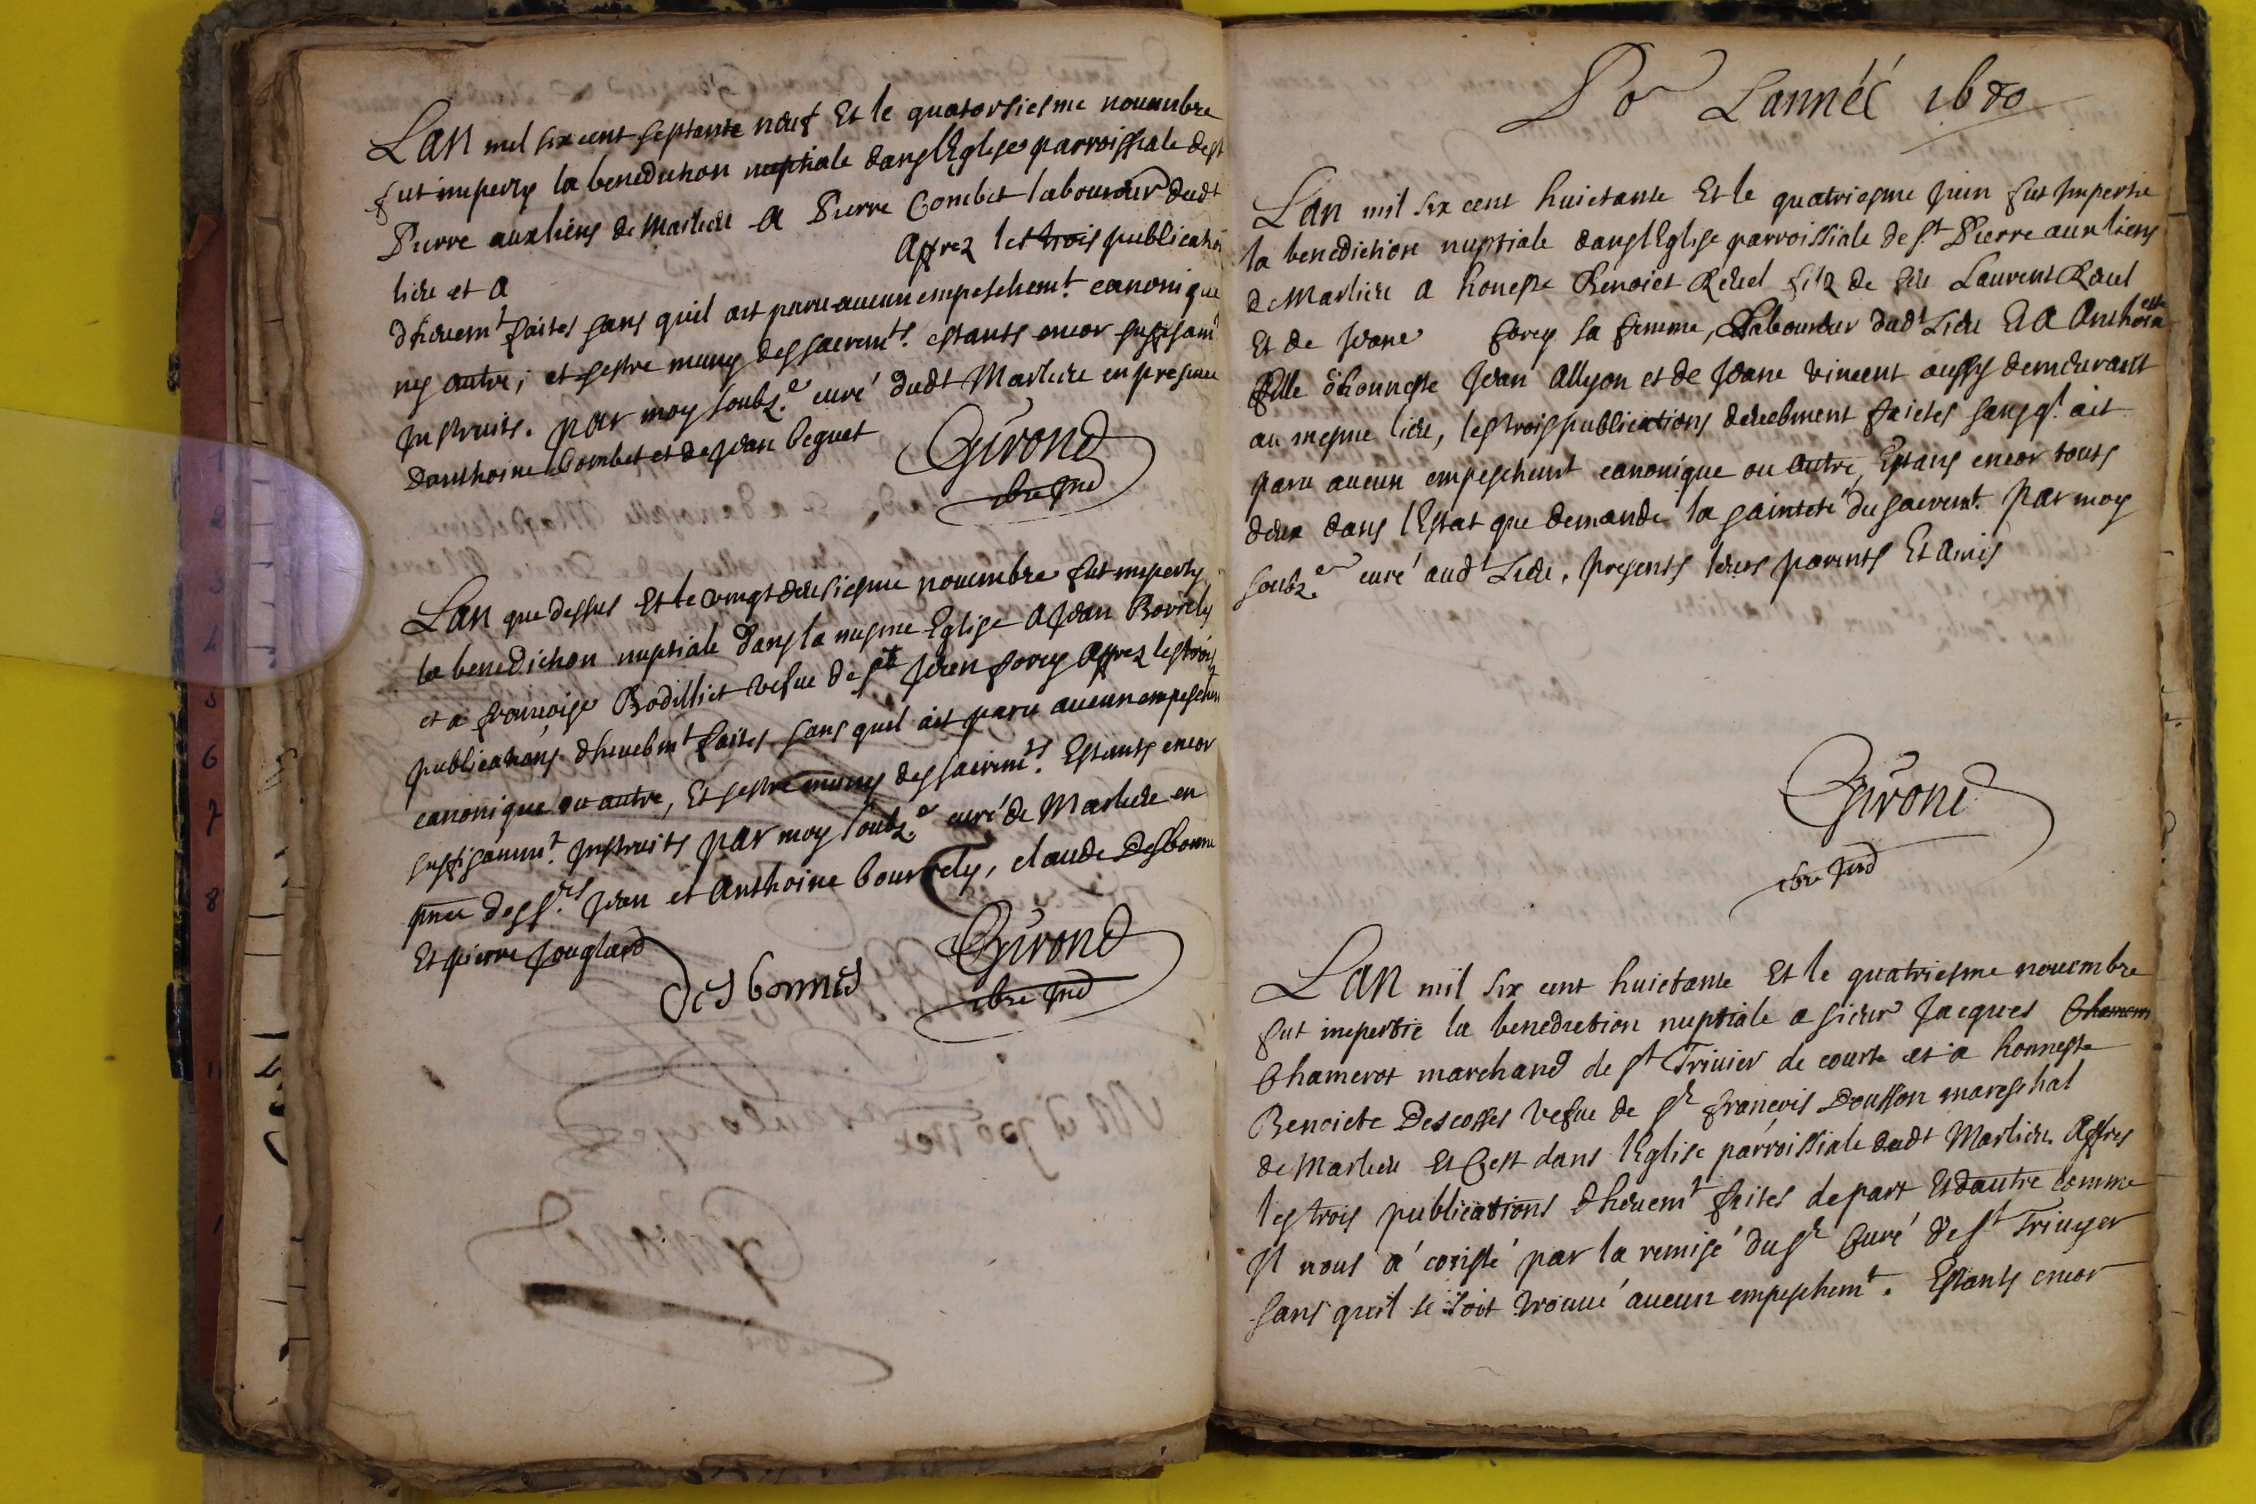 Lan mil six cent septante neuf Et le quatorsiesme nouembre
fut imperty la benediction nuptiale dans lEglise parroissiale de St
Pierre aux liens de Marlieu A Pierre Combet laboureur dudt
lieu et a Apres les trois publicatio
dheuemt faites sans quil ait paru aucun empeschemt. canonique
ny autre, et sestre muny des sacremts. estants encor suffisam
Instruits. par moy soubz.é curé dudt Marlieu en presence
danthoine Combet et de Jean beguet
Girond
Lan que dessus Et le vingt deusiesme nouembre fut imperty
la benediction nuptiale dans la mesme Eglise A Jean
et a francoise Bodilliet vefue de Jean forey Apres les trois
publications dheuebmt faites sans quil ait paru aucun empeschem
canonique ou autre, Et sestre munis des sacremts. Estants encor
suffisammt. Instruits par moy soubz.é curé de Marlieu en
pnce des Srs Jean et Anthoine bourrely, claude Desbonne
Et pierre Jouglard
Desbonnes
Girond
Pr Lannéé 1680
Lan mil six cent huictante Et le quatriesme Juin fut Impertie
la benediction nuptiale dans lEglise parroissiale de St Pierre aux liens
de Marlieu a honeste Benoict Reuel filz de feu Laurent Reuel
Et de Jeane forey sa femme, Laboureur dudt Lieu Et A Anthoinette
fille dhonneste Jean Allyon et de Jeane vincent aussy demeurant
au mesme lieu, les trois publications deuebment faictes sans ql. ait
paru aucun empeschemt canonique ou autre, Estans encor touts
deux dans lEstat que demande la sainteté du sacremt. par moy
soubz.é curé audt Lieu, presents leurs parents Et Amis
Girond
Lan mil six cent huictante Et le quatriesme nouembre
fut impertie la benediction nuptiale a sieur Jacques
Chamerot marchand de St Triuier de courte et a honneste
Benoicte Descosses vefue de Sr francois Dousson mareschal
de Marlieu Et C'est dans lEglise parroissiale dudt Marlieu Apres
les trois publications dheuemt faites de part Et dautre comme
Il nous á consté par la remise du Sr Curé de St Triuyer
sans quil se soit trouué aucun empeschemt. Estants encor